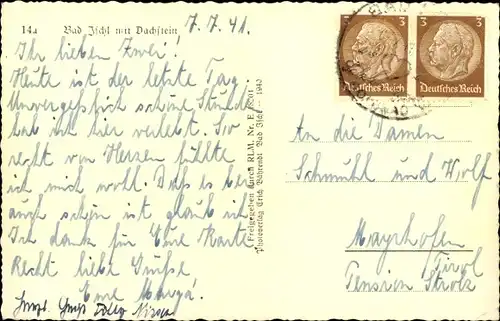 14a Bad Ischl mit Dachstein 7.7.41.
Ihr lieben Zwei!
Heute ist der letzte Tag
Unvergeßlich schöne Stunden
hab ich hier verlebt. So
recht von Herzen fühlte
ich mich wohl. Daß es bei
auch schön ist glaub ich
Ich dank für Eure Karte
Recht liebe Grüße
Eure
Freigegeben durch RLM. Nr. E
Photoverlag Erich Böhrendt, Bad Ischl — 1940
3 3
Deutsches Reich Deutsches Reich
An die Damen
Schmuhl und Wolf
Mayrhofen
Tirol
Pension Strolz